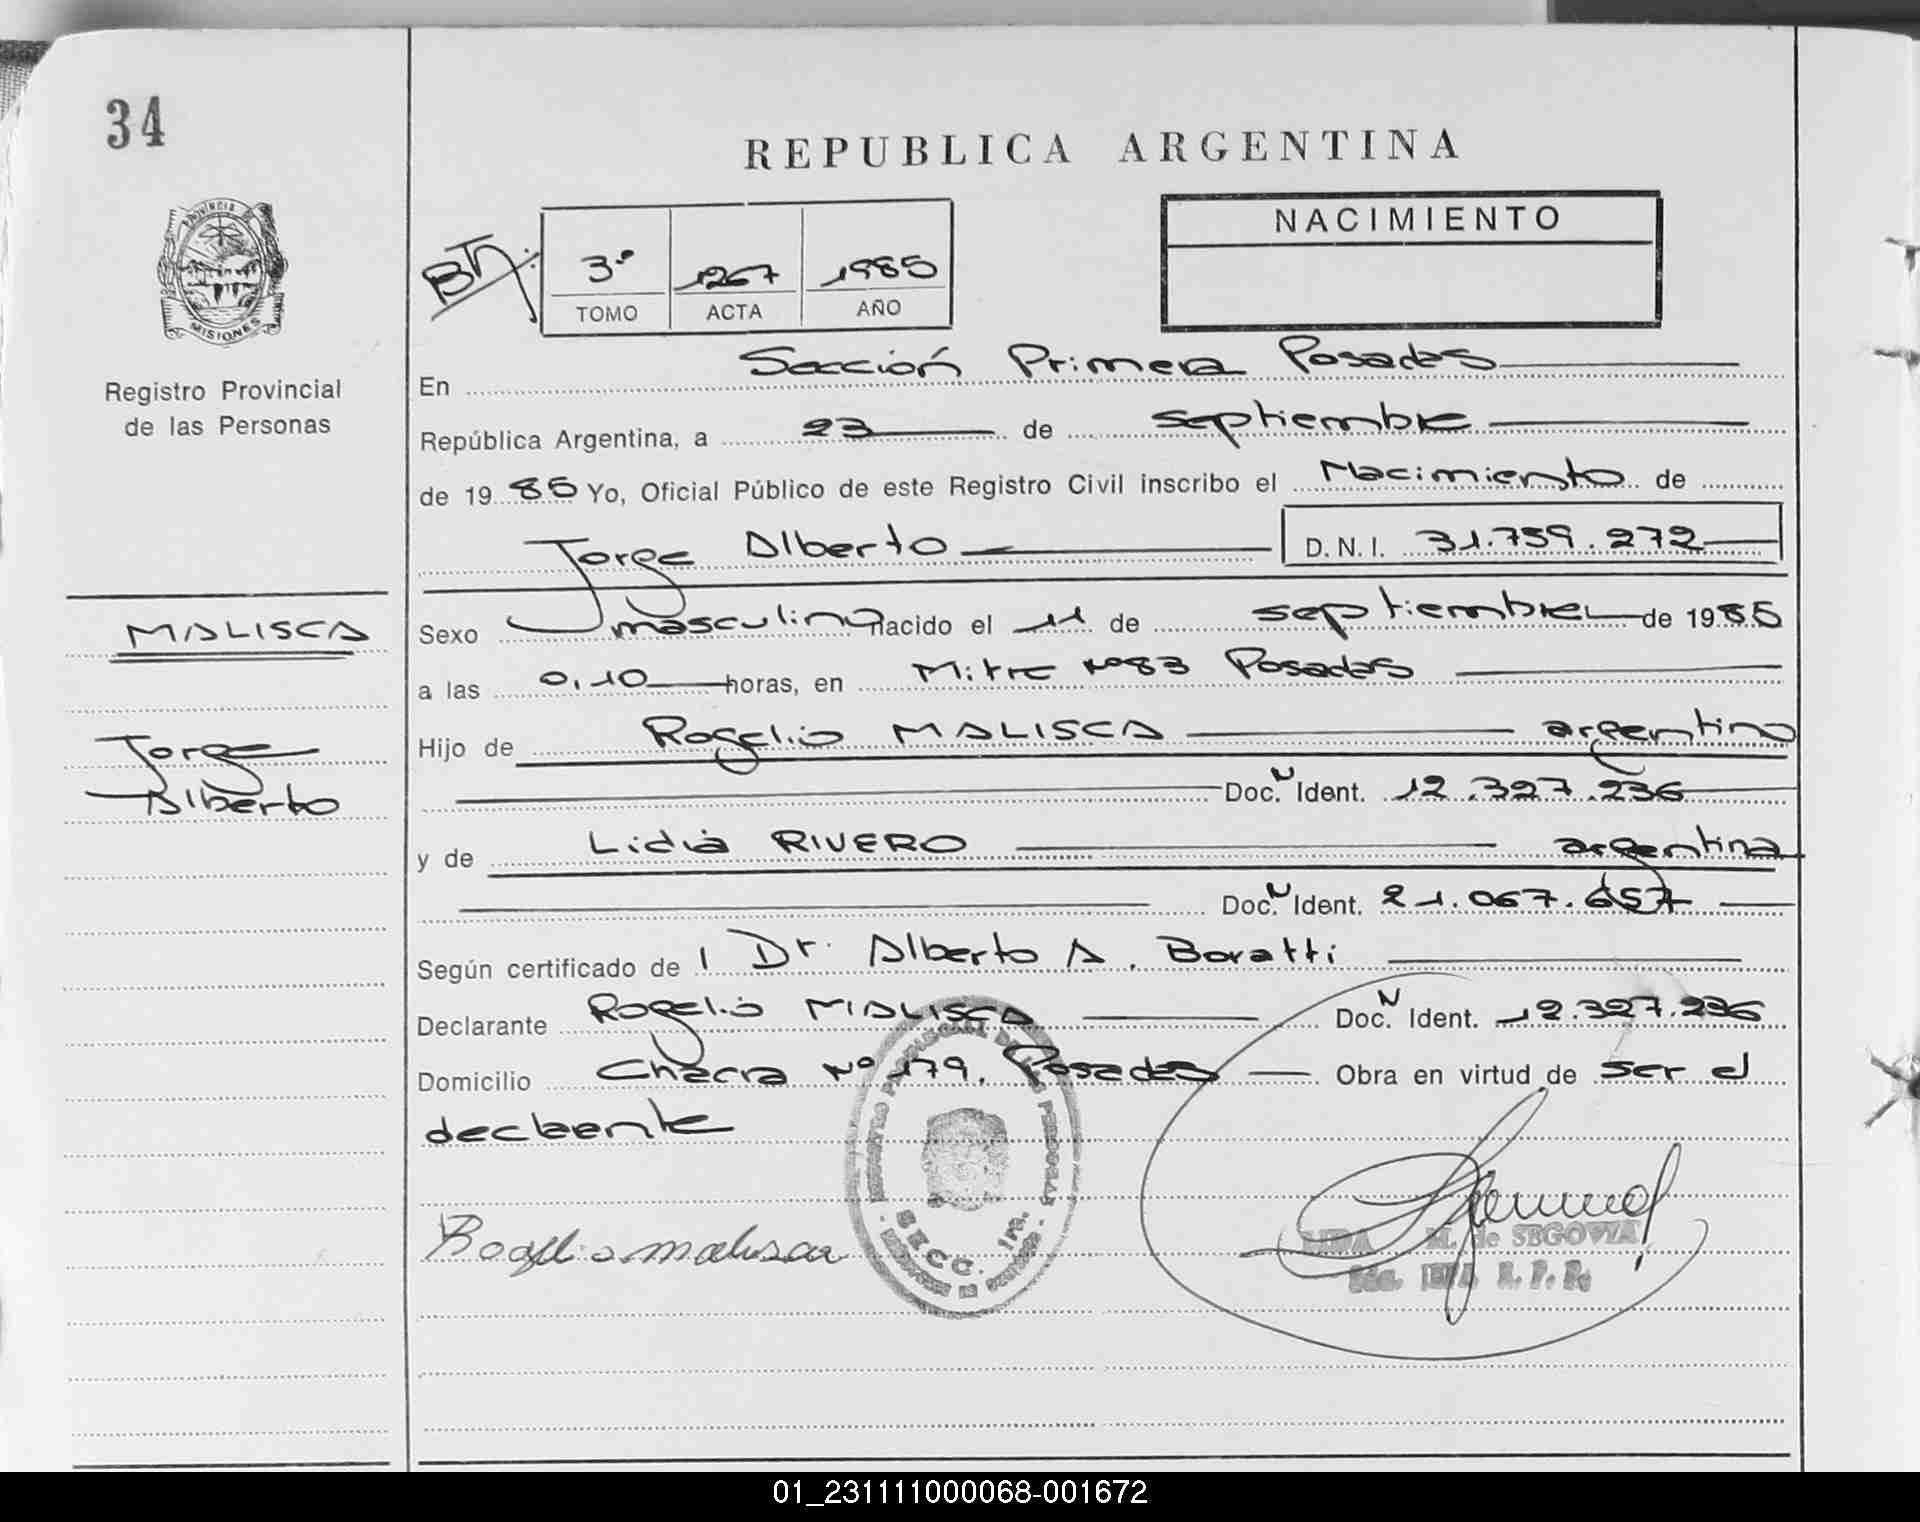 34
REPUBLICA ARGENTINA
PROVINCIA DE
MISIONES
Registro Provincial
de las Personas
NACIMIENTO
3º 1267 1985
TOMO ACTA AÑO
En Sección Primera Posadas
República Argentina, a 23 de septiembre
de 1985 Yo, Oficial Público de este Registro Civil inscribo el Nacimiento de
Jorge Alberto D.N.I. 31.759.272
MALISCA
Jorge
Alberto
Sexo masculino nacido el 11 de septiembre de 1985
a las 0,10 horas, en Mitre Nº 83 Posadas
Hijo de Rogelio MALISCA argentino
Doc. N Ident. 12.327.236
y de Lidia RIVERO argentina
Doc. N Ident. 21.067.657
Según certificado de l Dr. Alberto A. Boratti
Declarante Rogelio MALISCA Doc. N Ident. 12.327.236
Domicilio Chacra Nº 179, Posadas Obra en virtud de ser el
declarante
Rogelio malisca
REGISTRO PROVINCIAL DE LAS PERSONAS
SECC. 1ra.
M. de SEGOVIA
R. P. P.
01_231111000068-001672